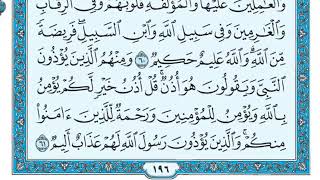 وَٱلْعَٰمِلِينَ عَلَيْهَا وَٱلْمُؤَلَّفَةِ قُلُوبُهُمْ وَفِى ٱلرِّقَابِ
وَٱلْغَٰرِمِينَ وَفِى سَبِيلِ ٱللَّهِ وَٱبْنِ ٱلسَّبِيلِ ۖ فَرِيضَةً
مِّنَ ٱللَّهِ ۗ وَٱللَّهُ عَلِيمٌ حَكِيمٌ ٦٠ وَمِنْهُمُ ٱلَّذِينَ يُؤْذُونَ
ٱلنَّبِىَّ وَيَقُولُونَ هُوَ أُذُنٌ ۚ قُلْ أُذُنُ خَيْرٍ لَّكُمْ يُؤْمِنُ
بِٱللَّهِ وَيُؤْمِنُ لِلْمُؤْمِنِينَ وَرَحْمَةٌ لِّلَّذِينَ ءَامَنُوا۟
مِنكُمْ ۚ وَٱلَّذِينَ يُؤْذُونَ رَسُولَ ٱللَّهِ لَهُمْ عَذَابٌ أَلِيمٌ ٦١
١٩٦